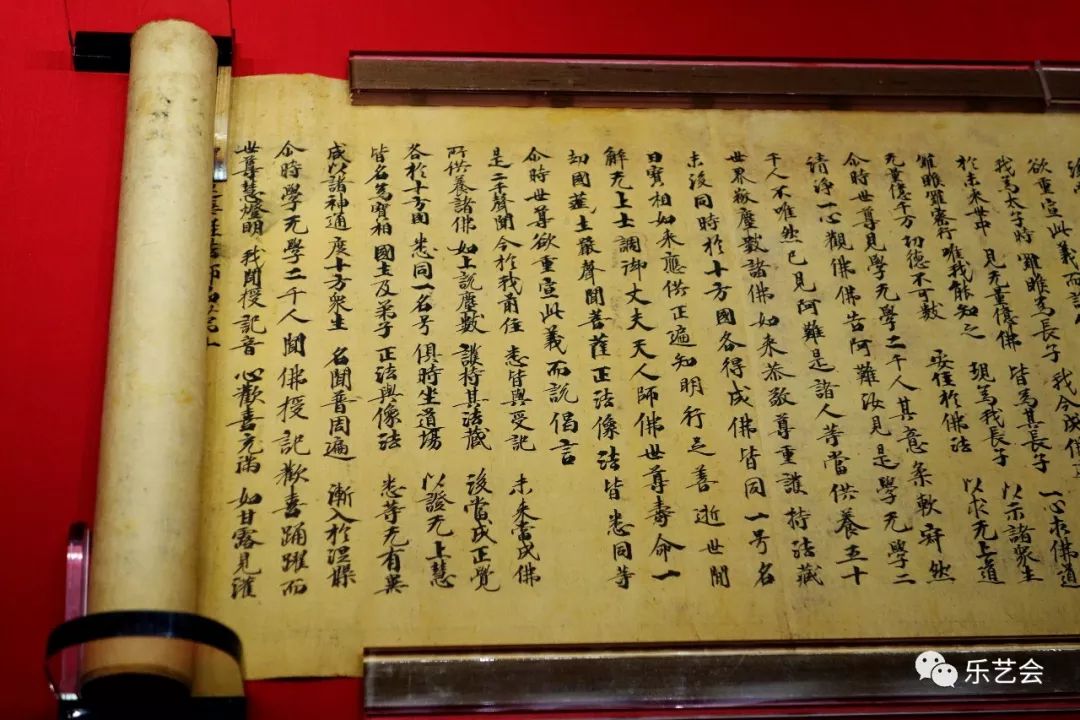 欲重宣此義而說
我為太子時 羅睺為長子 我今成佛道
於未來世中 見无量億佛 皆為其長子 一心求佛道
羅睺羅密行 唯我能知之 現為我長子 以示諸眾生
无量億千万 功德不可數 安住於佛法 以求无上道
尒時世尊見學无學二千人其意柔軟寂然
清淨一心觀佛佛告阿難汝見是學无學二
千人不唯然已見阿難是諸人等當供養五十
世界微塵數諸佛如來恭敬尊重護持法藏
末後同時於十方國各得成佛皆同一号名
曰寶相如來應供正遍知明行足善逝世間
解无上士調御丈夫天人師佛世尊壽命一
劫國莊土嚴聲聞菩薩正法像法皆悉同等
尒時世尊欲重宣此義而說偈言
是二千聲聞 今於我前住 悉皆與受記 未來當成佛
所供養諸佛 如上說塵數 護持其法藏 後當成正覺
各於十方國 悉同一名号 俱時坐道場 以證无上慧
皆名為寶相 國土及弟子 正法與像法 悉等无有異
咸以諸神通 度十方眾生 名聞普周遍 漸入於涅槃
尒時學无學二千人聞佛授記歡喜踊躍而
世尊慧燈明 我聞授記音 心歡喜充滿 如甘露見灌
乐艺会